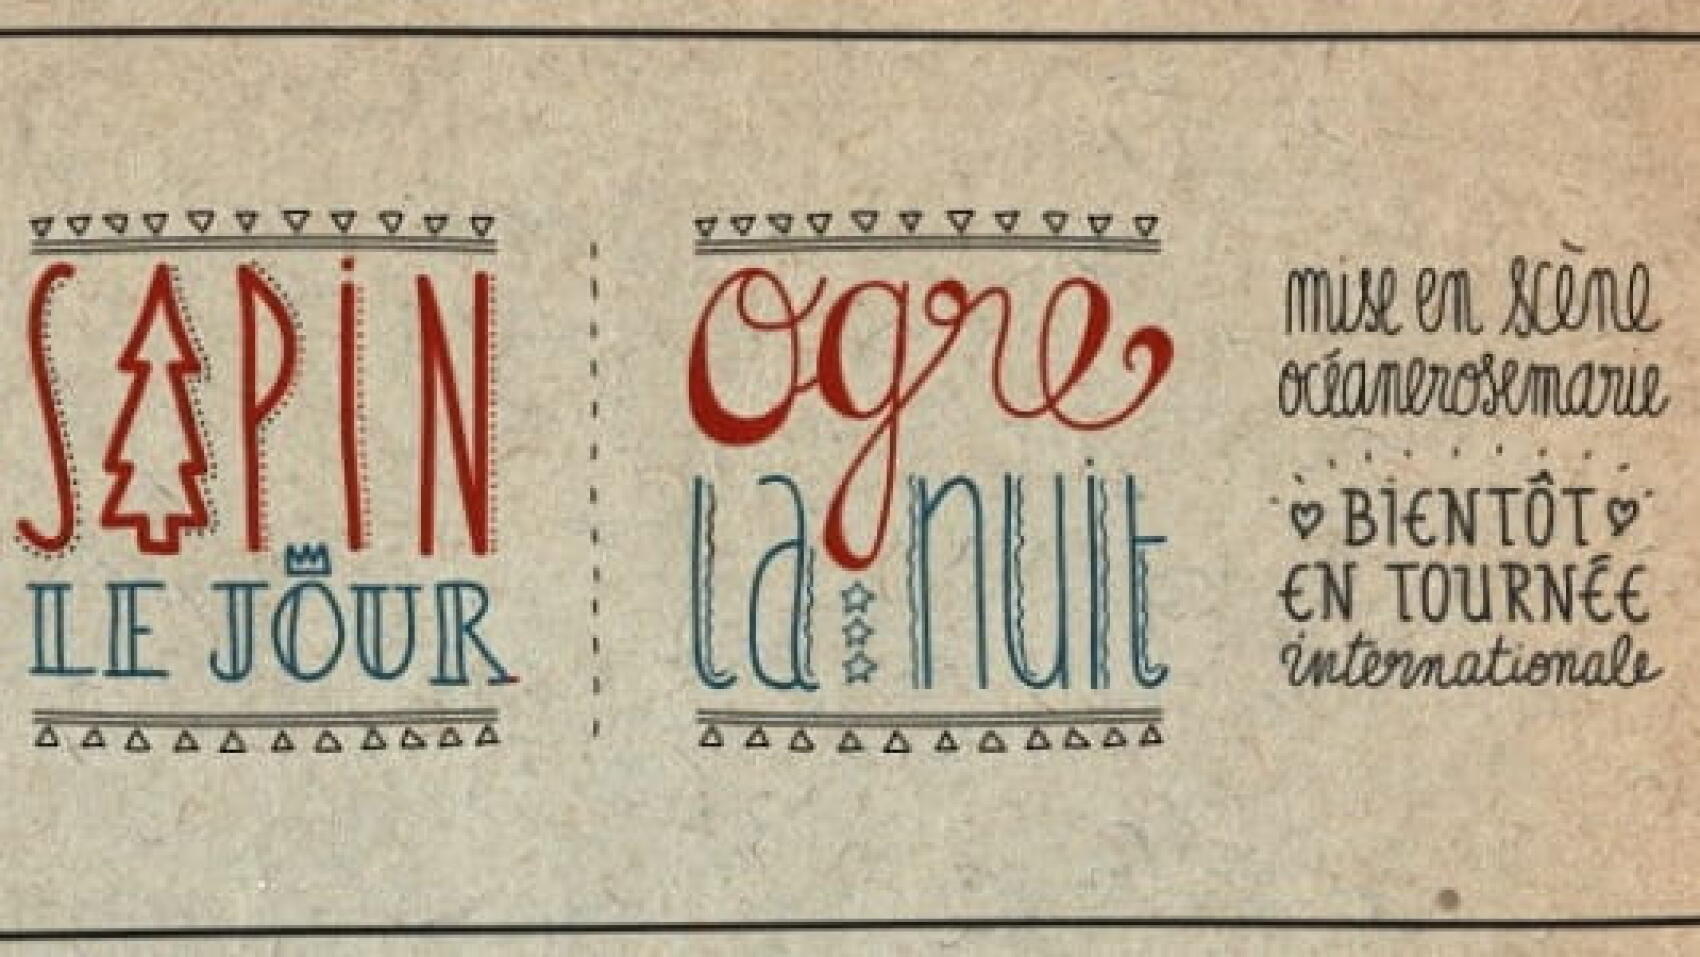 SAPiN
LE JOUR
ogre
la nuit
mise en scène
océanerosemarie
BiENTÔT
EN TOURNÉE
internationale